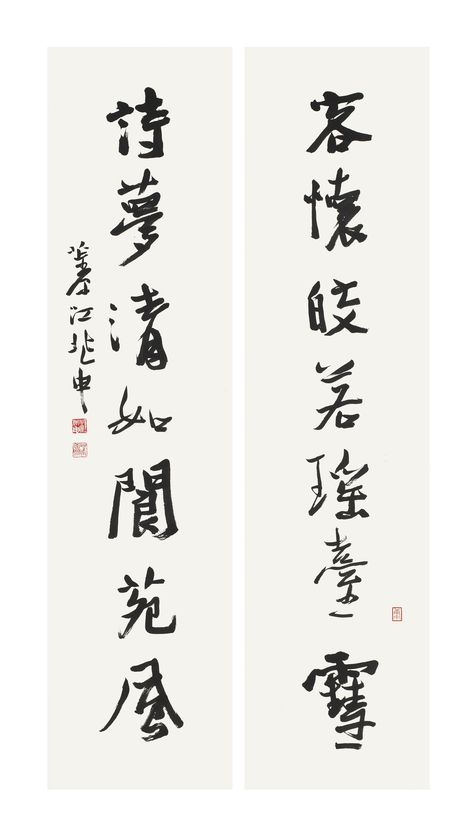 客懷皎若瑤臺雪
詩夢清如閬苑風
江兆申